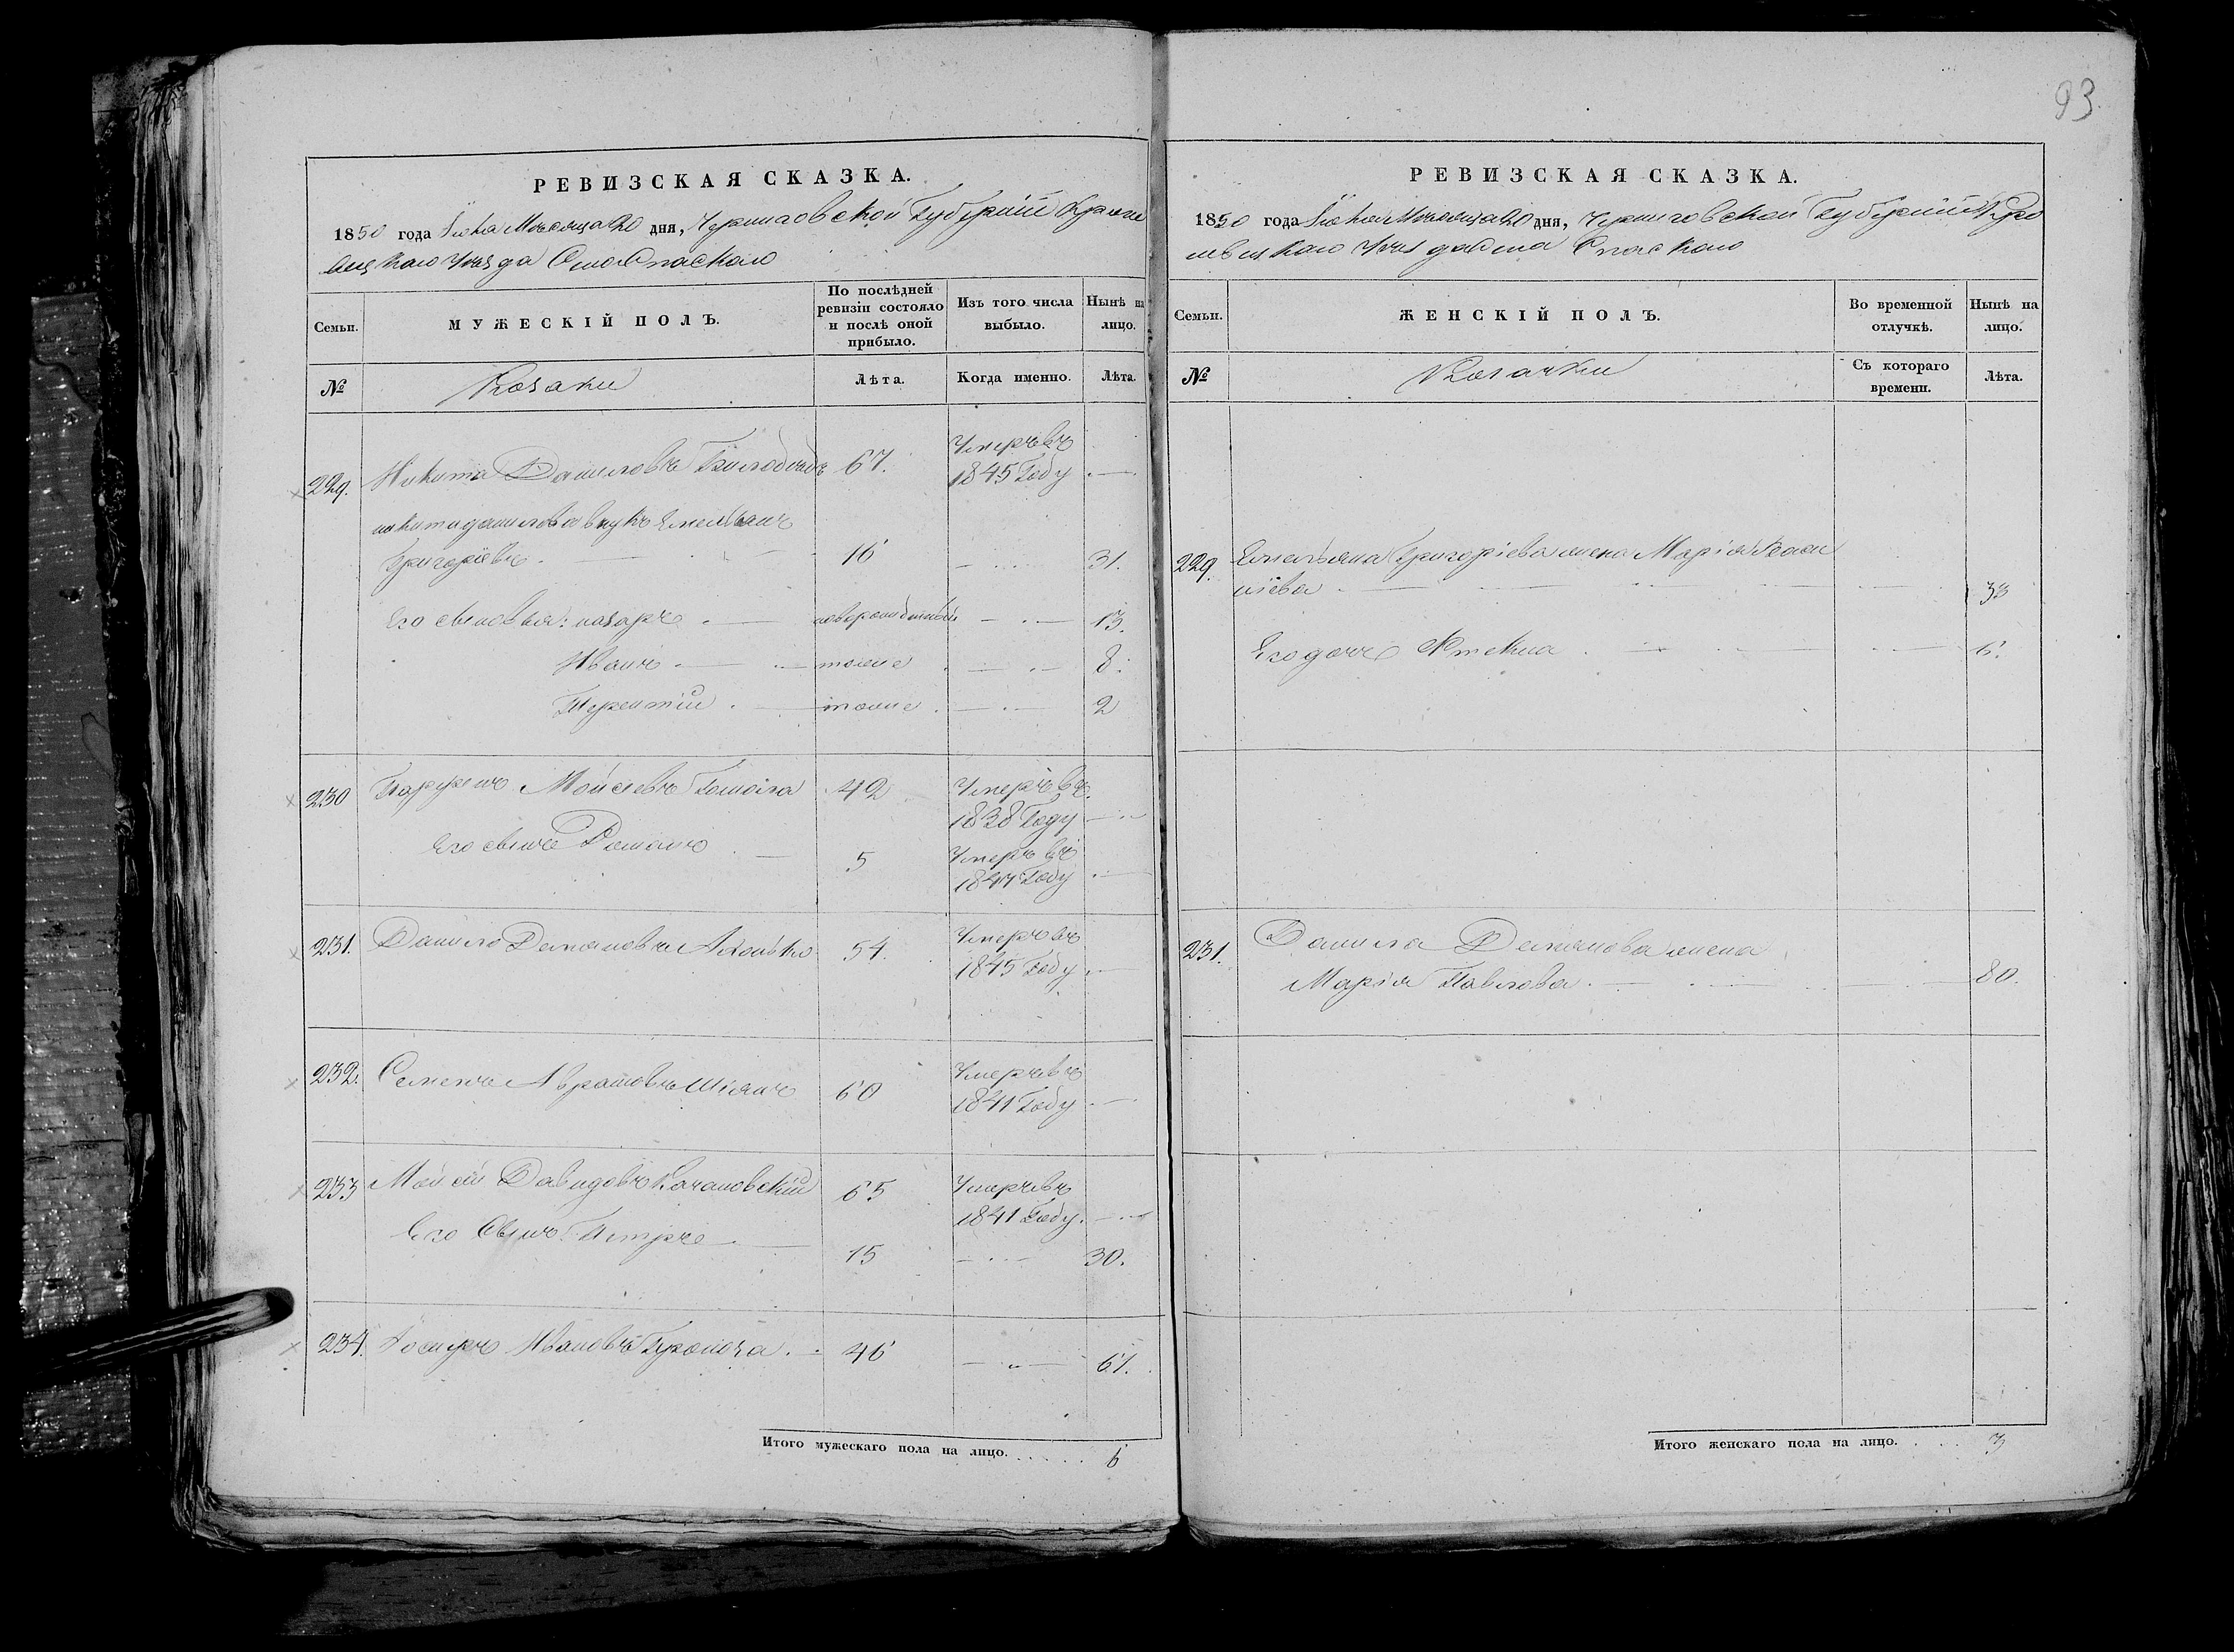 93
РЕВИЗСКАЯ СКАЗКА.
1850 года Іюня Месяца 20 дня, Черниговской Губерніи Кроле
вецкаго Уезда Села Спаскаго
Семьи.
МУЖЕСКІЙ ПОЛЪ.
По послѣдней ревизіи состояло и послѣ оной прибыло.
Изъ того числа выбыло.
Нынѣ на лицо.
№
Козаки
Лѣта.
Когда именно.
Лѣта.
229. Никита Даниловъ 67. Умеръ въ
1845 Году
никити данилова внукъ Емельянъ
Григоріевъ 16 31.
Его сыновья: назаръ новорожденный 13.
Иванъ тоже 8.
Терентій тоже 2
230 Парфенъ Мойсеевъ 42 Умеръ въ
1838 Году
Его сынъ Романъ 5 Умеръ въ
1847 Году
231. Данило Демяновъ 54. Умеръ въ
1845 Году
232. Семенъ 60 Умеръ въ
1841 Году
233 Мойсей Давидовъ Качановскій 65 Умеръ въ
1841 Году.
Его Сынъ Петръ 15 30.
234. Іосифъ Ивановъ 46 61.
Итого мужескаго пола на лицо. 6
РЕВИЗСКАЯ СКАЗКА.
1850 года Іюня Месяца 20 дня, Черниговской Губерніи Кро
левецкаго Уезда Села Спаскаго
Семьи.
ЖЕНСКІЙ ПОЛЪ.
Во временной отлучкѣ.
Нынѣ на лицо.
№
Козачки
Съ котораго времени.
Лѣта.
229. Емельяна Григоріева жена Марія 
33
Его дочь 6.
231. Данила Демянова жена
Марія Павлова 80.
Итого женскаго пола на лицо. 3